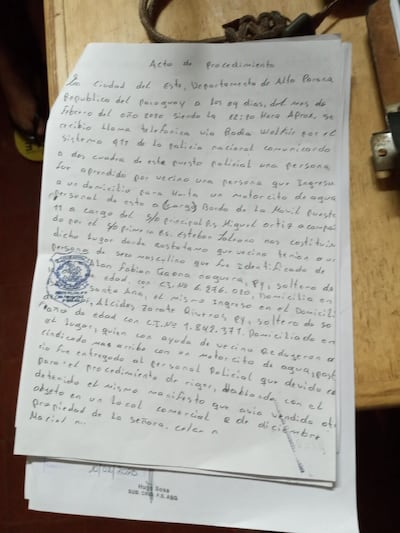 Acta de procedimiento
En ciudad del Este, Departamento de Alto Parana
Republica del paraguay a los 09 dias, del mes de
Febrero del año 2020 siendo la 22:20 Hora Aprox, se
recibio llama telefonica via Radio Walkir por el
sistema 911 de la policia nacional comunicando
a dos cuadra de este puesto policial una persona
fue aprendido por vecino una persona que Ingreso
a un domicilio para Hurta un motorcito de agua
personal de esta a Bordo de la Movil puesto
11 a cargo del S/O principal Ps. Miguel Ortiz acompa
ado por el S/O primero Ps. Esteban nos constituim
dicho lugar donde constatamo que vecino tenian a un
persona de sexo masculino que fue identificado de
Alan Fabian Gaona noguera, Py, soltero de
edad con C.I. Nº 6.276.020, Domicilia en
santa Ana, el mismo Ingreso en el Domicili
Alcides Zarate Riveros, Py, soltero de 50
años de edad con C.I. Nº 1.842.377. Domiciliado en
el lugar, quien con ayuda de vecino Redujeron a
sindicado mas arriba con un motorcito de agua, post
cio fue entregado al personal policial que
para el procedimiento de rigor, Hablando con el
detenido el mismo manifesto que avia vendido otr
objeto en un local comercial 8 de diciembre
propiedad de la señora, celea n
Mariel n..
Hugo Sosa
SUB OFIC P.S. ASG